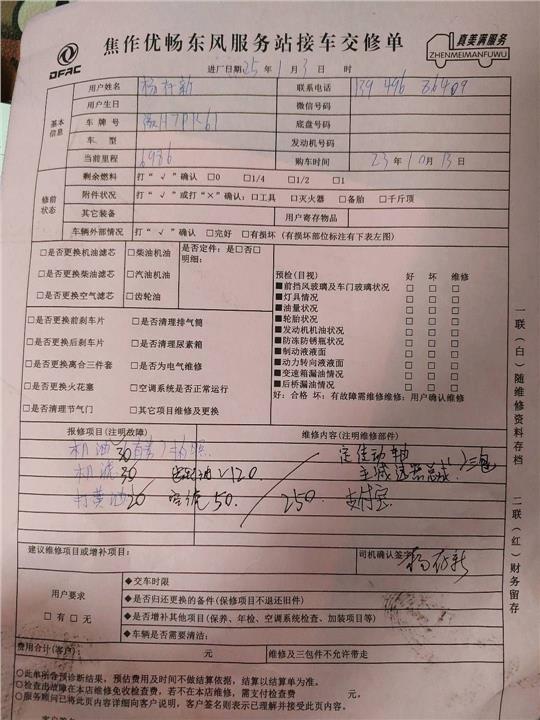 DFAC
焦作优畅东风服务站接车交修单
真美满服务
ZHENMEIMANFUWU
进厂日期25年1月3日 时
基本信息
用户姓名 杨存新 联系电话
用户生日 微信号码
车牌号 底盘号码
车型 发动机号码
当前里程 6986 购车时间 23年10月13日
修前状态
剩余燃料 打“√”确认 □0 □1/4 □1/2 □1
附件状况 打“√”或打“×”确认:□工具 □灭火器 □备胎 □千斤顶
其它装备 用户寄存物品
车辆外部情况 打“√”确认 □完好 □有损坏(有损坏部位标注有下表左图)
□是否更换机油滤芯 □柴油机油 是否定件:是□否□
□是否更换柴油滤芯 □汽油机油 明细:
□是否更换空气滤芯 □齿轮油
□是否更换前刹车片 □是否清理排气筒
□是否更换后刹车片 □是否清理尿素箱
□是否更换离合三件套 □是否为电气维修
□是否更换火花塞 □空调系统是否正常运行
□是否清理节气门 □其它项目维修及更换
预检(目视) 好 坏 维修
■前挡风玻璃及车门玻璃状况 □ □ □
■灯具情况 □ □ □
■油量状况 □ □ □
■轮胎状况 □ □ □
■发动机机油状况 □ □ □
■防冻防锈瓶状况 □ □ □
■制动液液面 □ □ □
■动力转向液液面 □ □ □
■变速箱漏油情况 □ □ □
■后桥漏油情况 □ □ □
好:合格 坏:有故障需维修维修:用户确认维修
报修项目(注明故障) 维修内容(注明维修部件)
机油30
机滤30 120
打黄油20 50 250 支付宝
主减速器总成 三包
建议维修项目或增补项目: 司机确认签字: 杨存新
用户要求
□有 □无
◆交车时限
◆是否归还更换的备件(保修项目不退还旧件)
◆是否增补其他项目(保养、年检、空调系统检查、加装项目等)
◆车辆是否需要清洁:
费用合计(客户): 元 维修及三包件不允许带走
○此单所含预诊断结果,预估费用及时间不做结算依据,结算以结算单为准。
○检查出故障在本店维修免收检查费,若不在本店维修,需支付检查费 元。
○服务顾问已将此页内容详细向客户说明,客户签名则表示已理解并接受此页内容。
一联(白)随维修资料存档
二联(红)财务留存